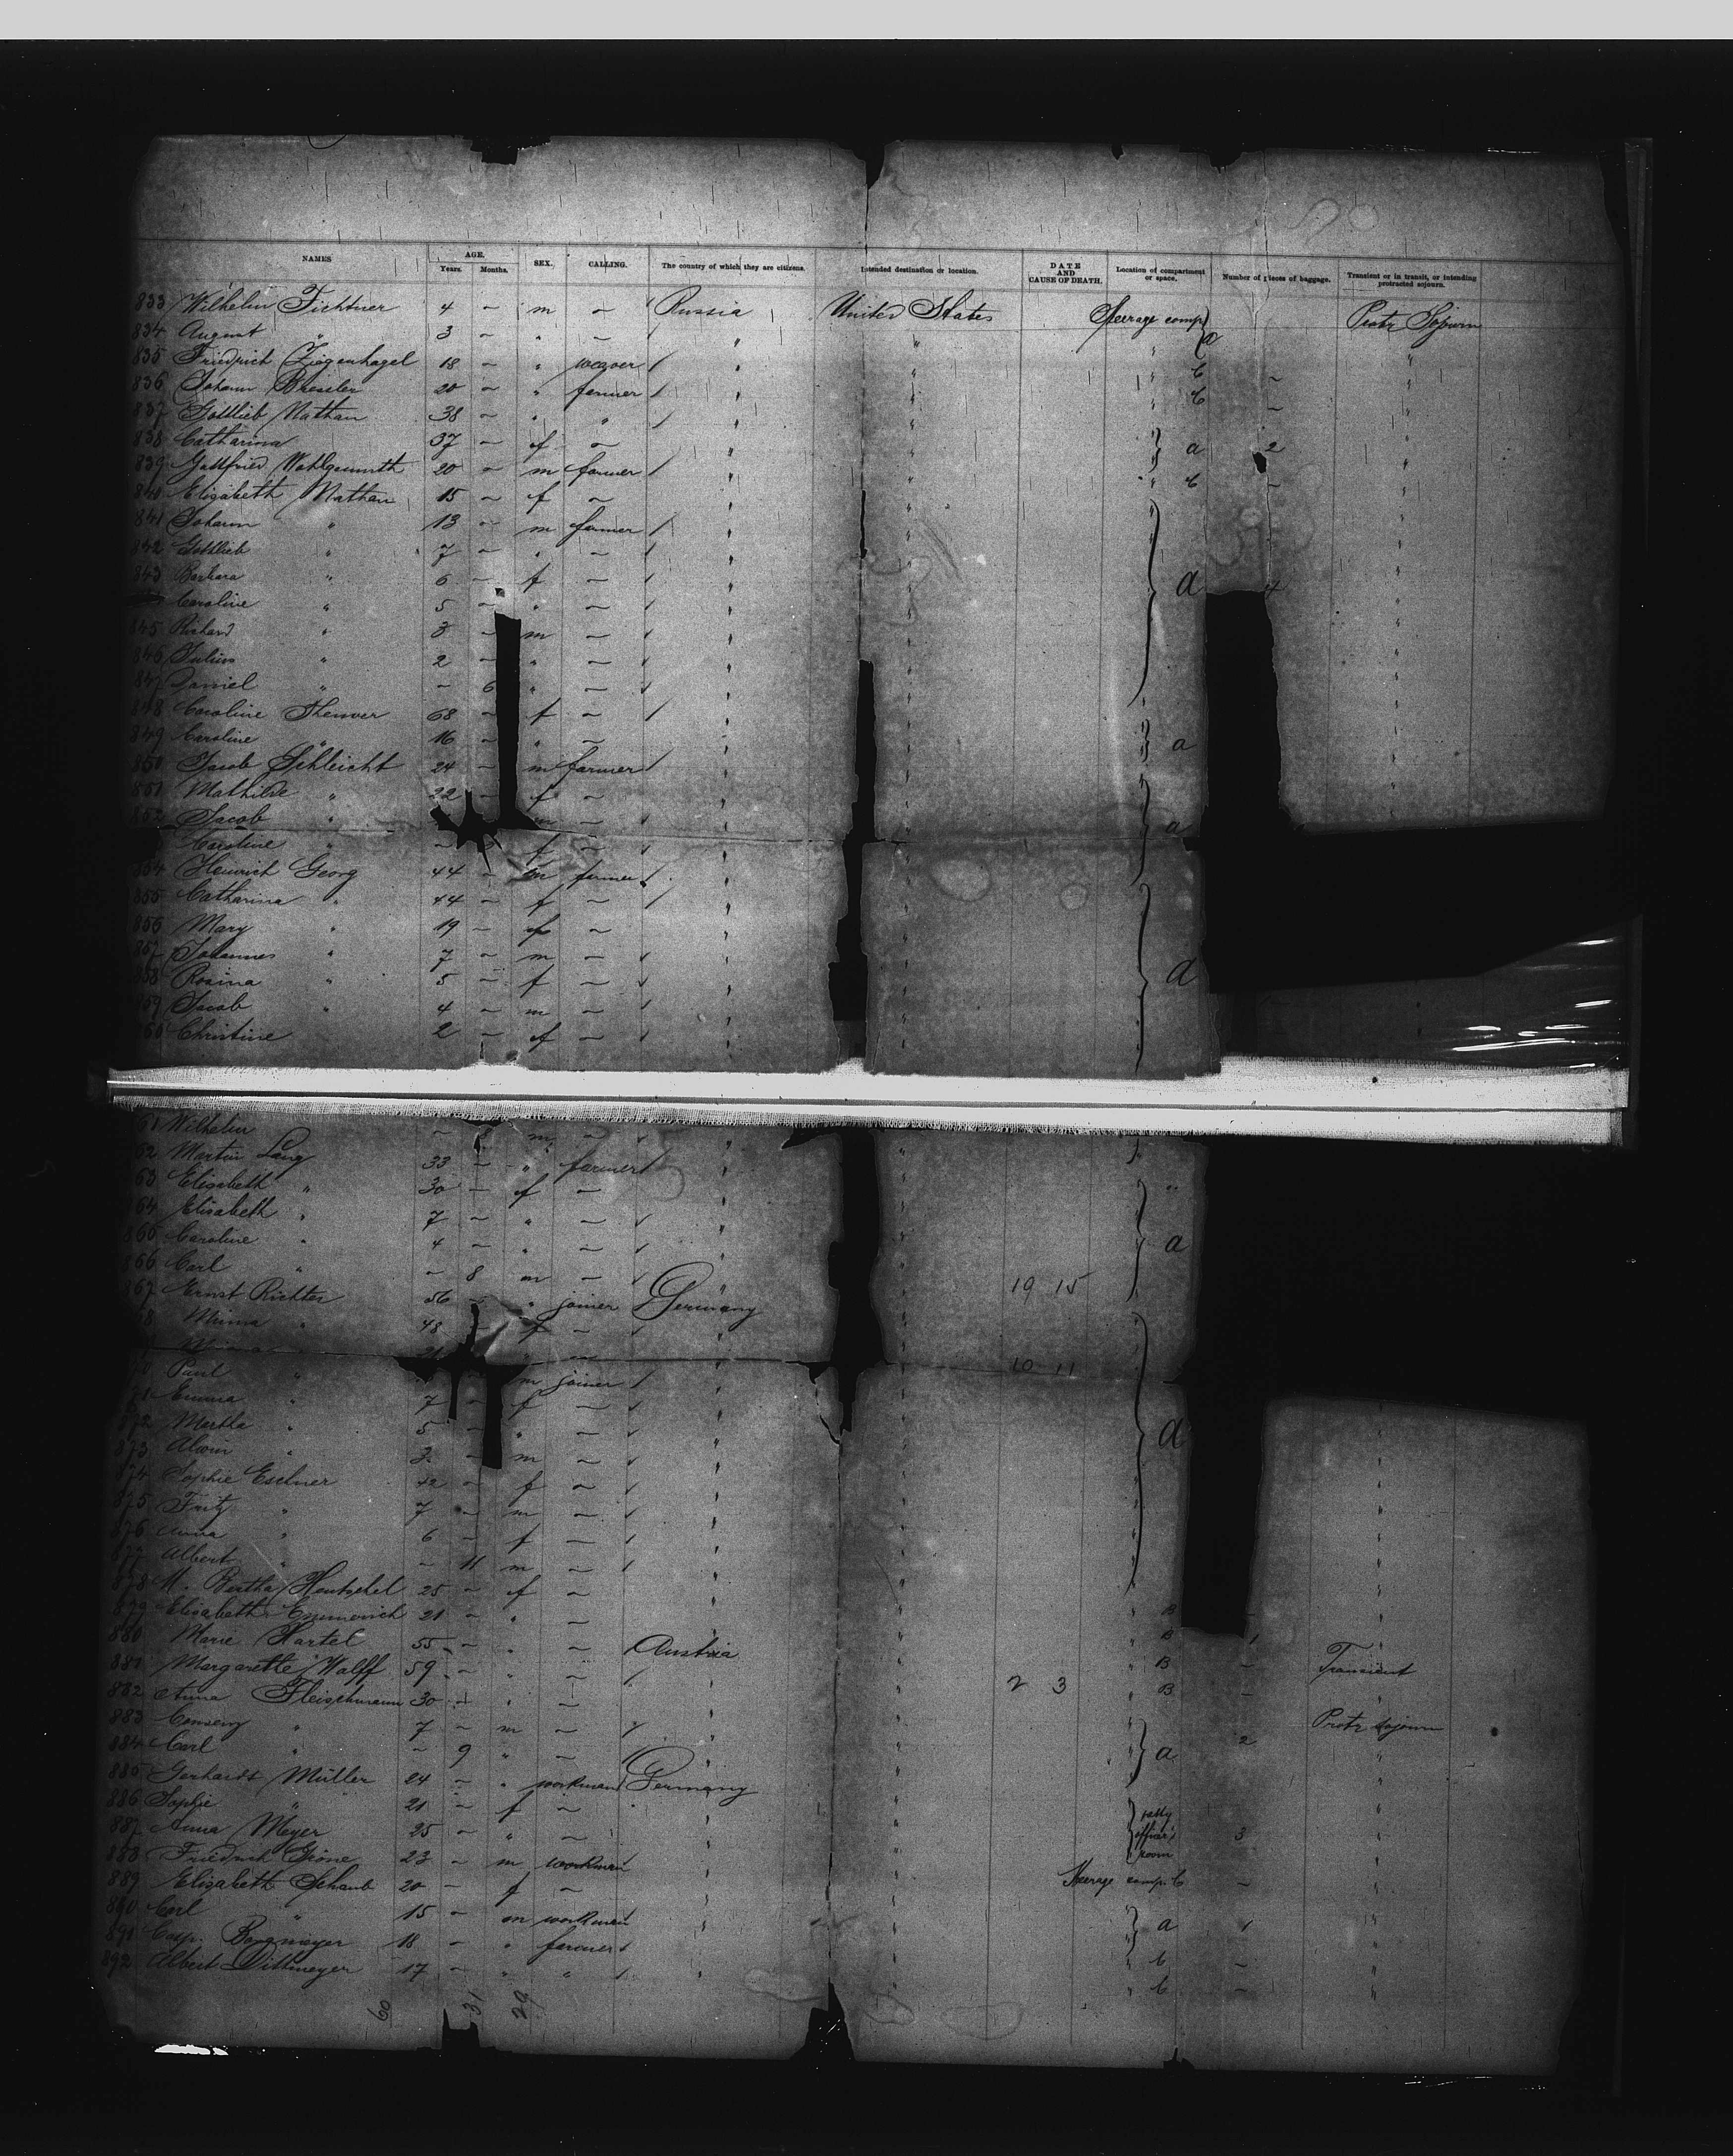 NAMES AGE. Years. Months. SEX. CALLING. The country of which they are citizens. Intended destination or location. DATE AND CAUSE OF DEATH. Location of compartment or space. Number of pieces of baggage. Transient or in transit, or intending protracted sojourn.
833 Wilhelm Fichtner 4 – m – Russia United States Steerage comp Protr Sojourn
834 August " 3 – " – " " a
835 Friedrich Ziegenhagel 18 – " weaver " " " b "
836 Johann Bressler 20 – " farmer " " " b – "
837 Gottlieb Nathan 38 – " " " "
838 Catharina 37 – f – " " a 2 "
839 Gottfried Wohlgemuth 20 – m farmer " " " b – "
840 Elizabeth Nathan 15 – f – " "
841 Johann " 13 – m farmer " " "
842 Gottlieb " 7 – " – " " "
843 Barbara " 6 – f – " " a 4 "
Caroline " 5 – " – " " "
845 Richard " 3 – m – " " "
846 Julius " 2 – " – " " "
847 Daniel " – 6 " – " " "
848 Caroline 68 – f – " " "
849 Caroline " 16 – " – " " a "
850 Jacob Schleicht 24 – m farmer " " "
851 Mathilde " 22 – f – " " "
852 Jacob " m – " " a
Caroline " – f – " "
854 Heinrich Georg 44 – m farmer " "
855 Catharina " 44 – f – " "
856 Mary " 19 – f – " "
857 Johannes " 7 – m – " "
858 Rosina " 5 – f – " " a
859 Jacob " 4 – m – " "
860 Christine 2 – f – " "
61 Wilhelm – m – " "
62 Martin Lang 33 – " farmer " "
63 Elisabeth " 30 – f – " "
64 Elisabeth " 7 – " – " "
865 Caroline " 4 – " – " " a
866 Carl " – 8 m – " "
867 Ernst Richter 56 – " joiner Germany " 19 15
68 Minna " 48 – f – " "
Minna " 21 " – " " 10 11
Paul " m joiner " "
71 Emma " 7 – f – " "
872 Martha " 5 – " – " " a
873 Alwin " 3 m – " " "
874 Sophie Eschner 42 – f – " " "
875 Fritz " 7 – m – " " "
876 Anna " 6 – f – " " "
877 Albert " – 11 m – " " "
878 M. Bertha Hentschel 25 – f – " " "
879 Elisabeth Emmerich 21 – " – " " " B – "
880 Marie Hartel 55 – " – Austria " " B 1 "
881 Margarethe Wolff 59 – " – " " " B – Transient
882 Anna Fleischmann 30 – " – " " 2 3 " B – "
883 7 – m – " " Protr Sojourn
884 Carl " – 9 " – " " a 2 "
885 Gerhardt Müller 24 – " workman Germany " "
886 Sophie " 21 – f – " " petty "
887 Anna Meyer 25 – " – " " officer's 3 "
888 Friedrich 23 – m workman " " room "
889 Elizabeth Schaub 20 – f – " " Steerage comp. b – "
890 Carl " 15 – m workman " " a 1 "
891 Casp. 18 – " farmer " " " b – "
892 Albert Dittmeyer 17 – " " " " " b – "
60 31 29